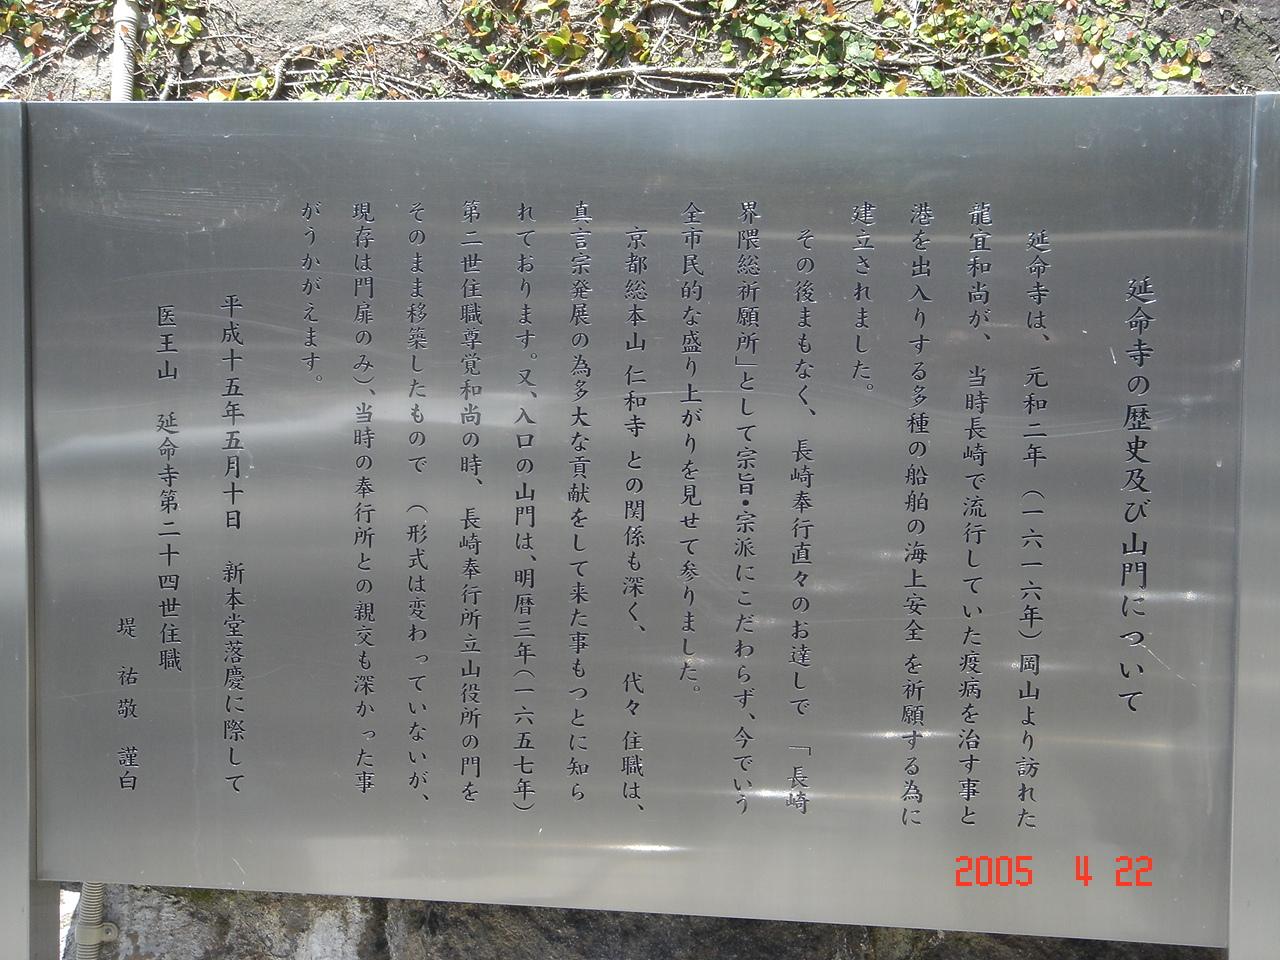 延命寺の歴史及び山門について
延命寺は、元和二年（一六一六年）岡山より訪れた
龍宜和尚が、当時長崎で流行していた疫病を治す事と
港を出入りする多種の船舶の海上安全を祈願する為に
建立されました。
その後まもなく、長崎奉行直々のお達しで「長崎
界隈総祈願所」として宗旨・宗派にこだわらず、今でいう
全市民的な盛り上がりを見せて参りました。
京都総本山仁和寺との関係も深く、代々住職は、
真言宗発展の為多大な貢献をして来た事もつとに知ら
れております。又、入口の山門は、明暦三年（一六五七年）
第二世住職尊覚和尚の時、長崎奉行所立山役所の門を
そのまま移築したもので（形式は変わっていないが、
現存は門扉のみ）、当時の奉行所との親交も深かった事
がうかがえます。
平成十五年五月十日 新本堂落慶に際して
医王山 延命寺第二十四世住職
堤 祐敬 謹白
2005 4 22